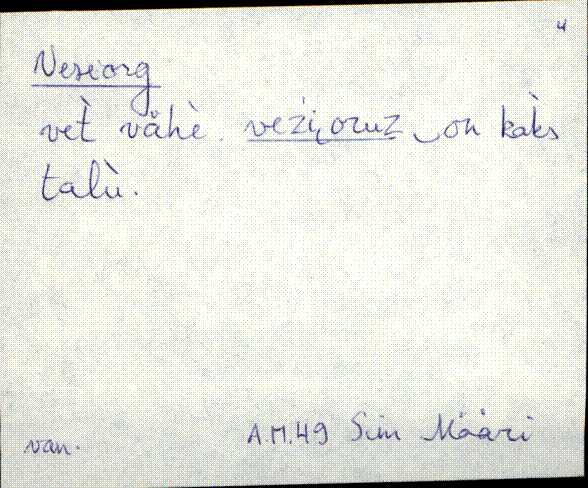 4
Vesiorg
vet̀ vähè. veźi̮oruz on kaks
talù.
van. A.M.49 Siim Määri